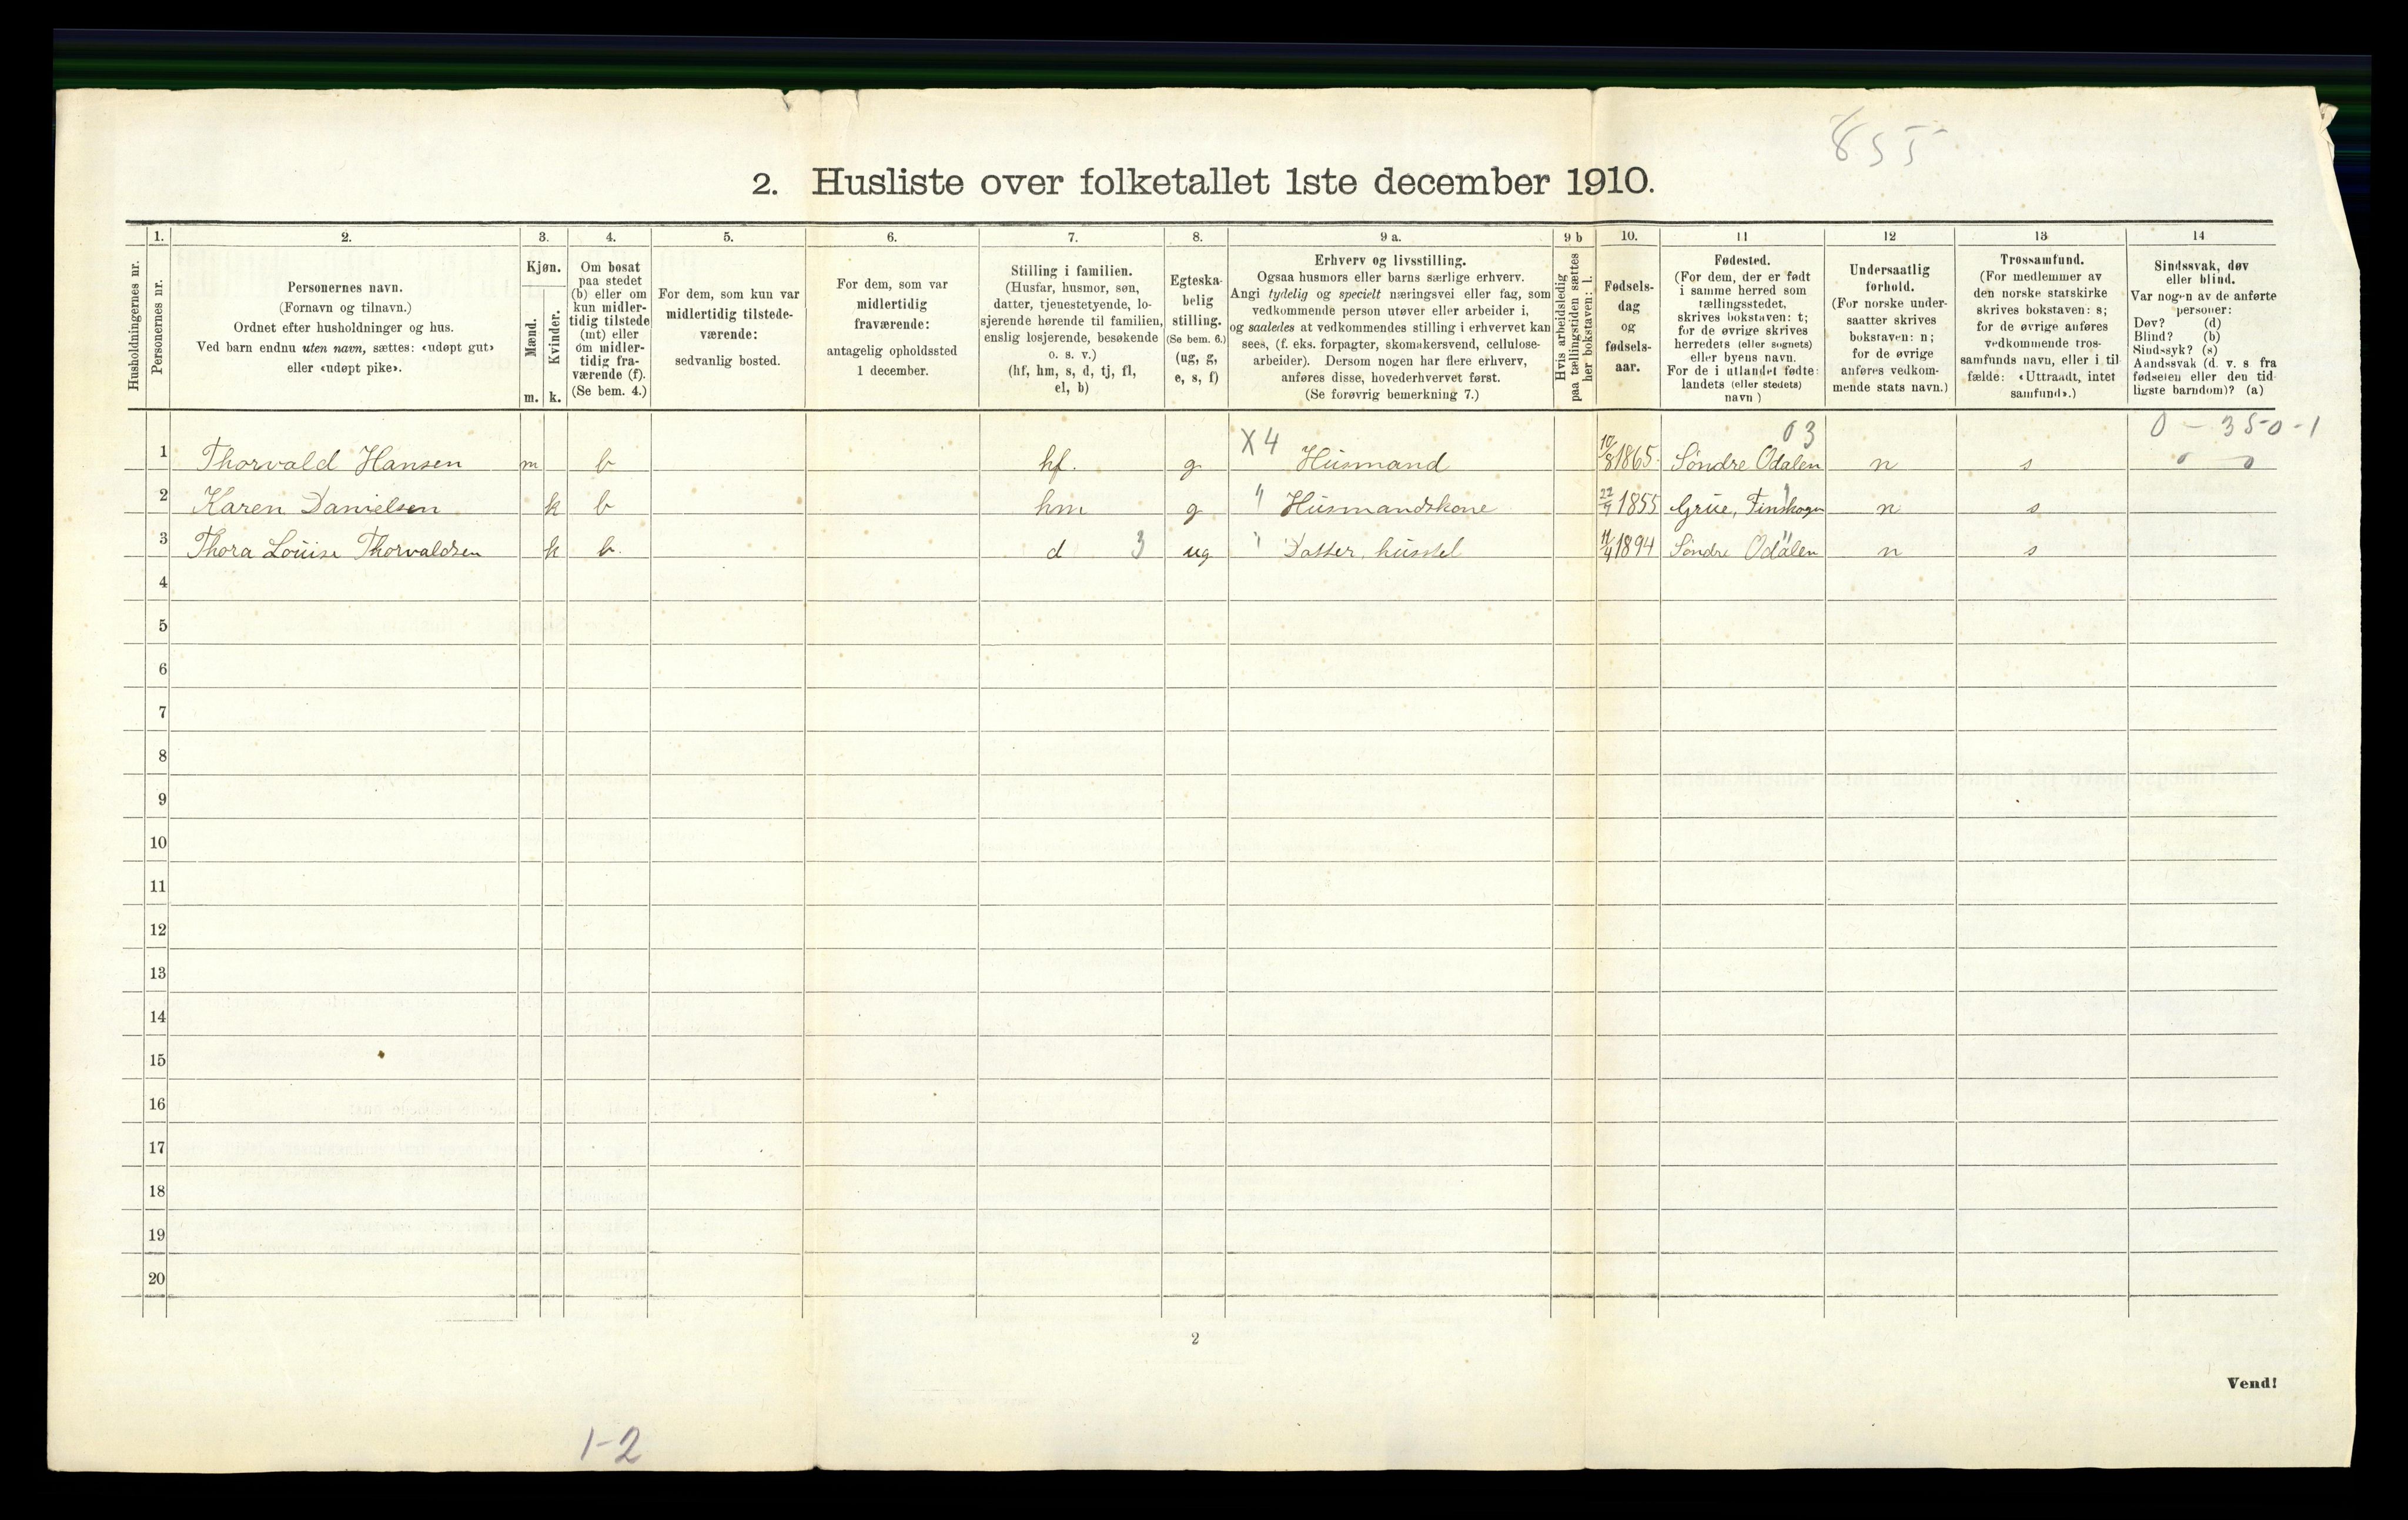 855
2. Husliste over folketallet 1ste december 1910.
Husholdningernes nr.
1.
Personernes nr.
2.
Personernes navn.
(Fornavn og tilnavn.)
Ordnet efter husholdninger og hus.
Ved barn endnu uten navn, sættes: «udøpt gut»
eller «udøpt pike».
3.
Kjøn.
Mænd.
Kvinder.
m.
k.
4.
Om bosat
paa stedet
(b) eller om
kun midler-
tidig tilstede
(mt) eller
om midler-
tidig fra-
værende (f).
(Se bem. 4.)
5.
For dem, som kun var
midlertidig tilstede-
værende:
sedvanlig bosted.
6.
For dem, som var
midlertidig
fraværende:
antagelig opholdssted
1 december.
7.
Stilling i familien.
(Husfar, husmor, søn,
datter, tjenestetyende, lo-
sjerende hørende til familien,
enslig losjerende, besøkende
o. s. v.)
(hf, hm, s, d, tj, fl,
el, b)
8.
Egteska-
belig
stilling.
(Se bem. 6.)
(ug, g,
e, s, f)
9 a.
Erhverv og livsstilling.
Ogsaa husmors eller barns særlige erhverv.
Angi tydelig og specielt næringsvei eller fag, som
vedkommende person utøver eller arbeider i,
og saaledes at vedkommendes stilling i erhvervet kan
sees, (f. eks. forpagter, skomakersvend, cellulose-
arbeider). Dersom nogen har flere erhverv,
anføres disse, hovederhvervet først.
(Se forøvrig bemerkning 7.)
9 b
Hvis arbeidsledig
paa tællingstiden sættes
her bokstaven: l.
10.
Fødsels-
dag
og
fødsels-
aar.
11
Fødested.
(For dem, der er født
i samme herred som
tællingsstedet,
skrives bokstaven: t;
for de øvrige skrives
herredets (eller sognets)
eller byens navn.
For de i utlandet fødte:
landets (eller stedets)
navn)
12
Undersaatlig
forhold.
(For norske under-
saatter skrives
bokstaven: n;
for de øvrige
anføres vedkom-
mende stats navn.)
13
Trossamfund.
(For medlemmer av
den norske statskirke
skrives bokstaven: s;
for de øvrige anføres
vedkommende tros-
samfunds navn, eller i til-
fælde: «Uttraadt, intet
samfund».)
14
Sindssvak, døv
eller blind.
Var nogen av de anførte
personer:
Døv? (d)
Blind? (b)
Sindssyk? (s)
Aandssvak (d. v. s fra
fødselen eller den tid-
ligste barndom)? (a)
X4 03 0 - 350 - 1
1 Thorvald Hansen m b hf. g Husmand 10/8 1865. Søndre Odalen n s
2 Karen Danielsen k b hm g " Husmandskone 1855 Grue, Finskogen n s
3 Thora Louise Thorvaldsen k b. d 3 ug " Datter, husstel 11/4 1894 Søndre Odalen n s
4
5
6
7
8
9
10
11
12
13
14
15
16
17
18
19
20
2
Vend!
1-2